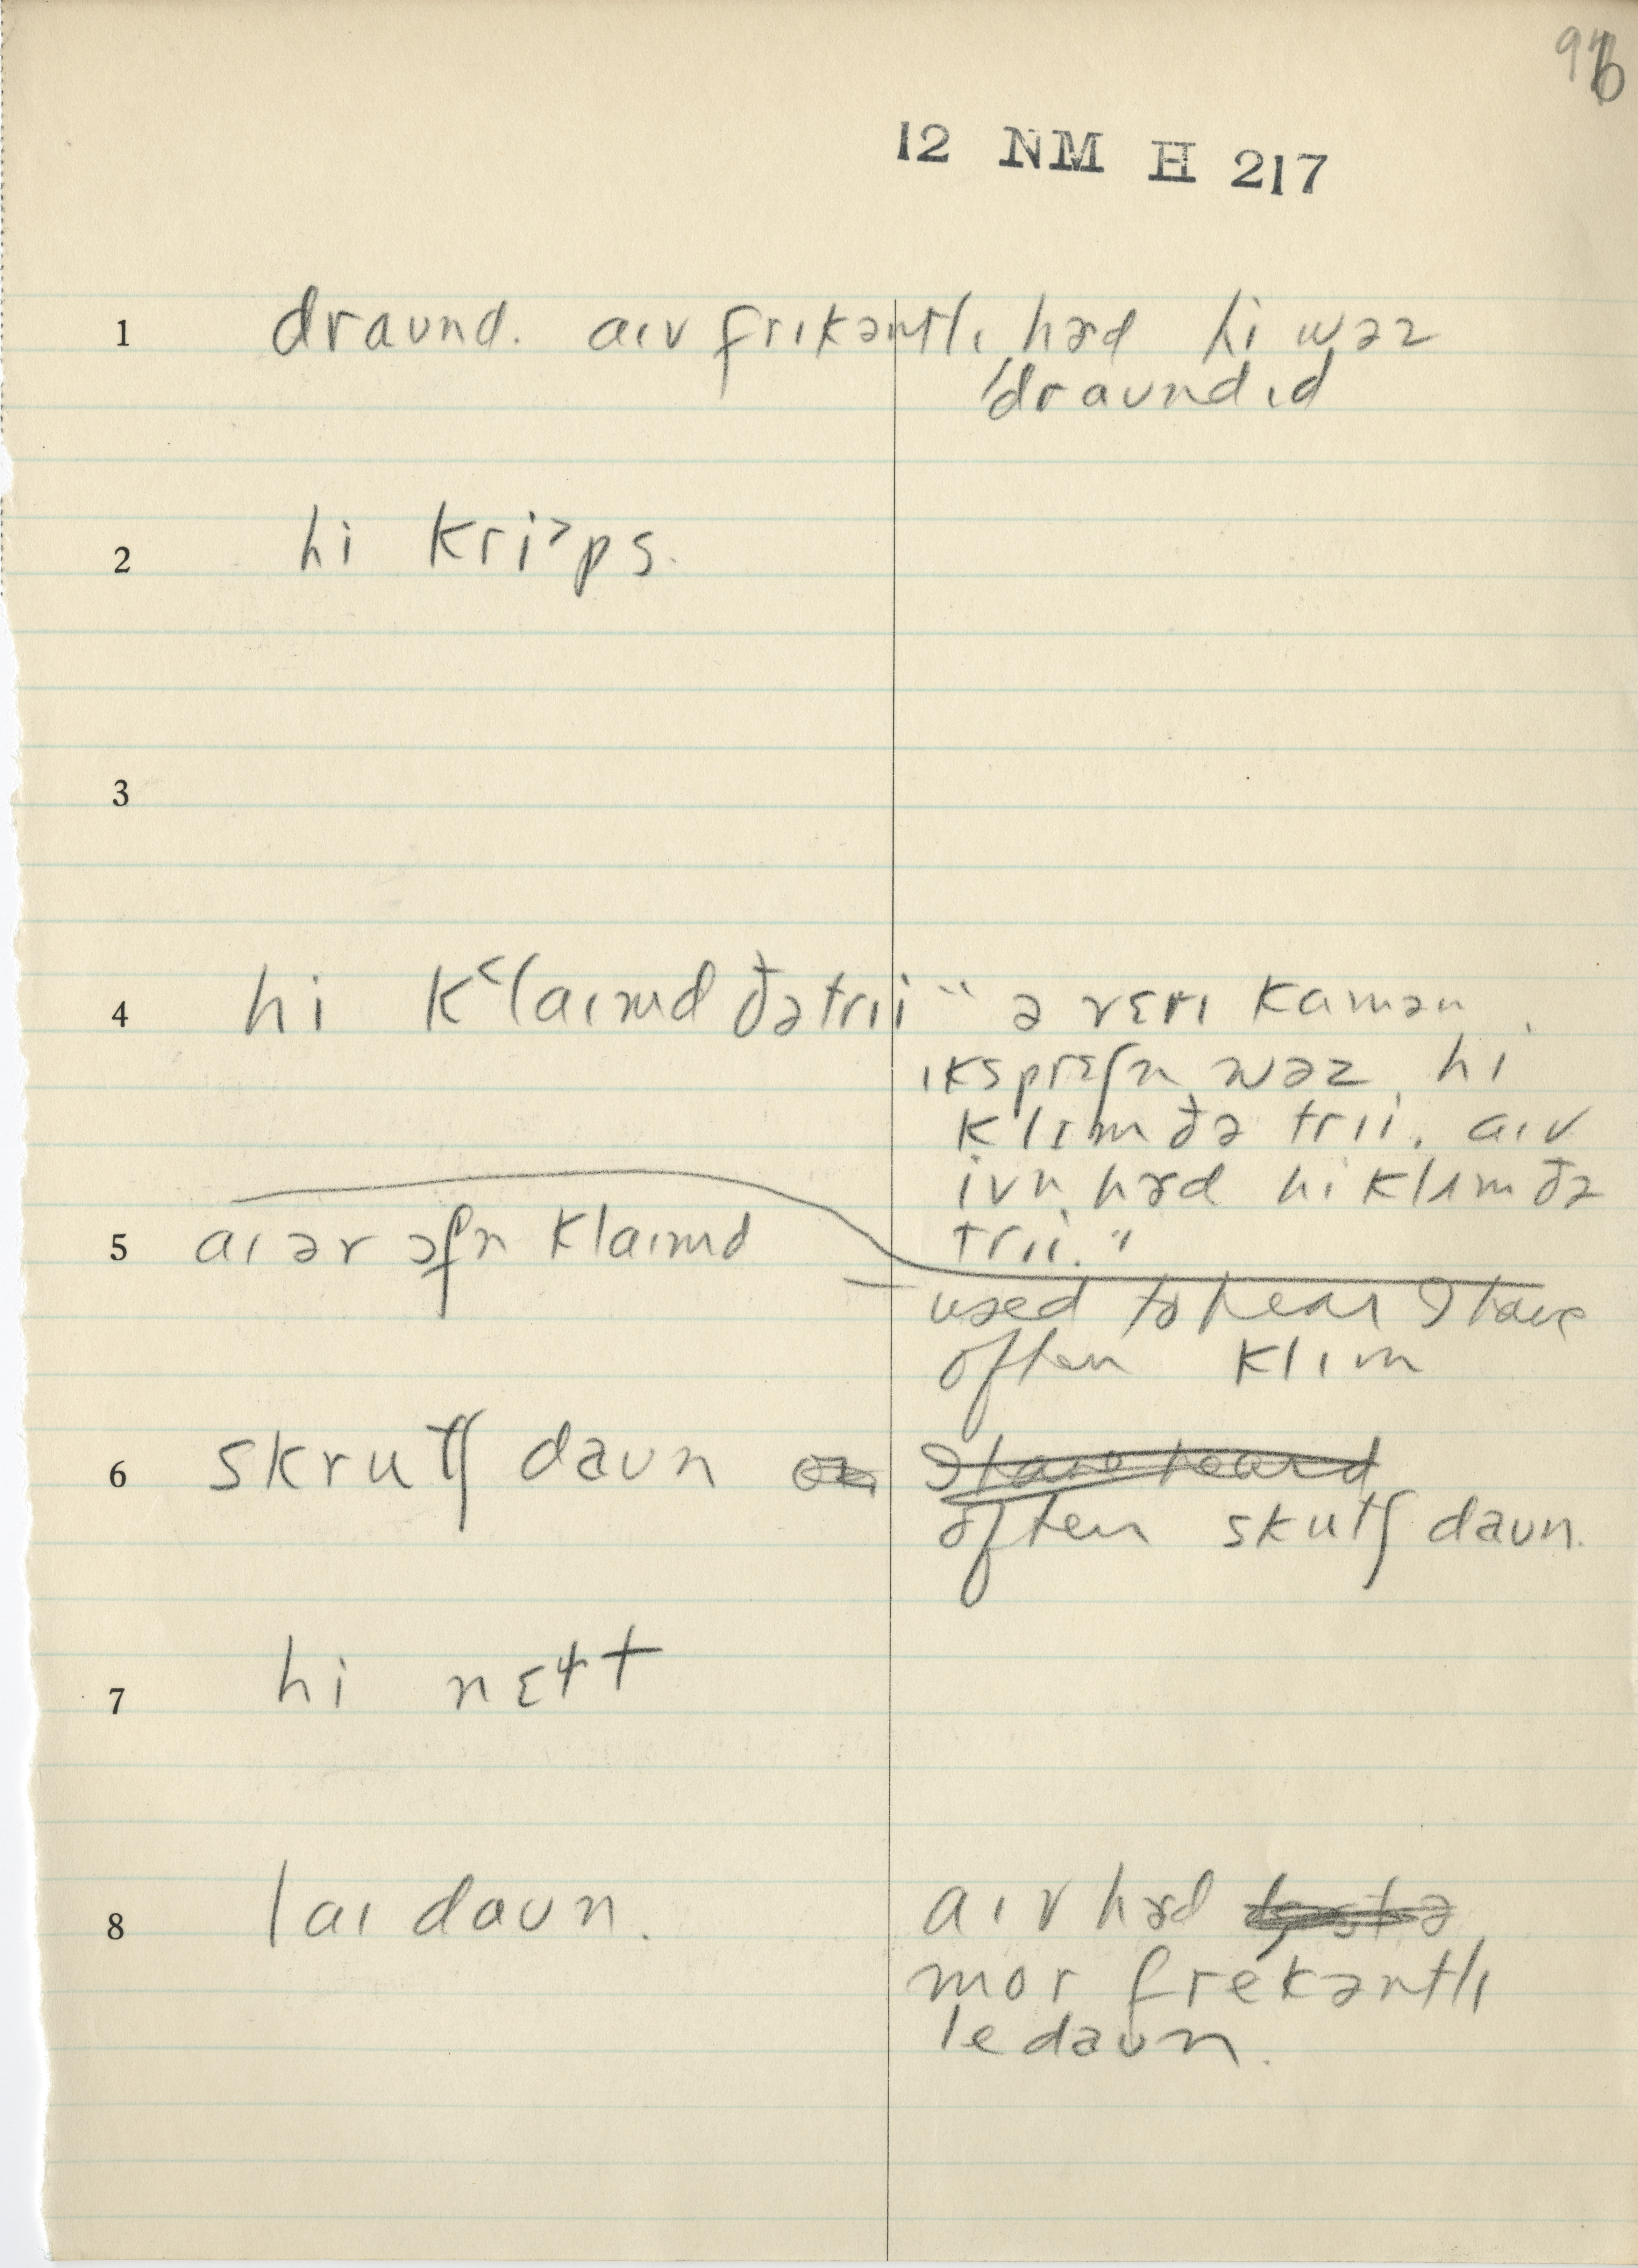 96
12 NM H 217
1 draʊnd. aɪv frikəntlɪ hɝd hi wəz
ˈdraʊndɪd
2 hi kri˃ps.
3
4 hi k˂laɪmd ðə trii " ə vɛrɪ kamən
ɪksprɛʃn wəz hi
klɪm ðə trii. aɪv
ivn hɝd hi klɪm ðə
trii."
5 aɪ əv ɔfn klaɪmd
used to hear I have
often klɪm
6 skrutʃ daʊn
often skutʃ daʊn.
7 hi nɛɫt
8 laɪ daʊn.
aɪv hɝd
mor frekəntlɪ
le daʊn.